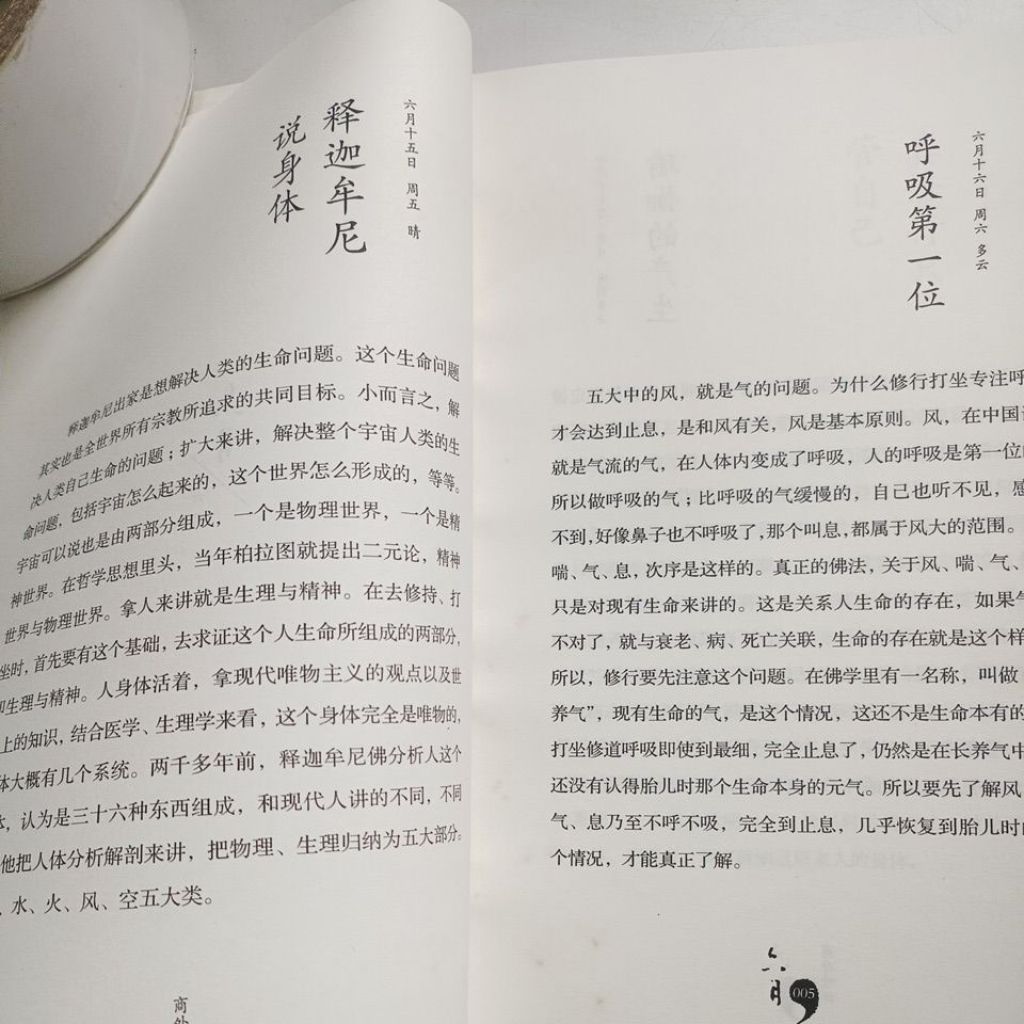 六月十五日 周五 晴
释迦牟尼
说身体
释迦牟尼出家是想解决人类的生命问题。这个生命问题
其实也是全世界所有宗教所追求的共同目标。小而言之，解
决人类自己生命的问题；扩大来讲，解决整个宇宙人类的生
命问题，包括宇宙怎么起来的，这个世界怎么形成的，等等。
宇宙可以说也是由两部分组成，一个是物理世界，一个是精
神世界。在哲学思想里头，当年柏拉图就提出二元论，精神
世界与物理世界。拿人来讲就是生理与精神。在去修持、打
坐时，首先要有这个基础，去求证这个人生命所组成的两部分，
生理与精神。人身体活着，拿现代唯物主义的观点以及世
上的知识，结合医学、生理学来看，这个身体完全是唯物的，
体大概有几个系统。两千多年前，释迦牟尼佛分析人这个
，认为是三十六种东西组成，和现代人讲的不同，不同
他把人体分析解剖来讲，把物理、生理归纳为五大部分：
、水、火、风、空五大类。
商
六月十六日 周六 多云
呼吸第一位
五大中的风，就是气的问题。为什么修行打坐专注呼
才会达到止息，是和风有关，风是基本原则。风，在中国
就是气流的气，在人体内变成了呼吸，人的呼吸是第一位
所以做呼吸的气；比呼吸的气缓慢的，自己也听不见，感
不到，好像鼻子也不呼吸了，那个叫息，都属于风大的范围。
喘、气、息，次序是这样的。真正的佛法，关于风、喘、气、
只是对现有生命来讲的。这是关系人生命的存在，如果气
不对了，就与衰老、病、死亡关联，生命的存在就是这个样
所以，修行要先注意这个问题。在佛学里有一名称，叫做
养气”，现有生命的气，是这个情况，这还不是生命本有的
打坐修道呼吸即使到最细，完全止息了，仍然是在长养气中
还没有认得胎儿时那个生命本身的元气。所以要先了解风
气、息乃至不呼不吸，完全到止息，几乎恢复到胎儿时
个情况，才能真正了解。
六月
005